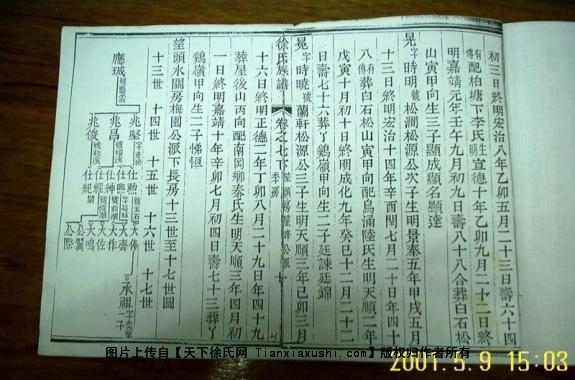 初三日終明宏治八年乙卯五月二十三日壽六十四
有傳配柏塘下李氏生明宣德十年乙卯九月二十二日終
明嘉靖元年壬午九月初九日壽八十八合葬白石松
山寅甲向生三子顯成顯名顯達
晃字時明號松澗松源公次子生明景泰五年甲戌五月
十三日終明宏治十四年辛酉閏七月二十日年四十
八有傳葬白石松山寅甲向配烏涌陸氏生明天順二年
戊寅十月初十日終明成化九年癸巳十二月二十二
日壽七十六葬丫鷄嶺甲向生二子廷諫廷錦
晃字時曉號蘭軒松源公三子生明天順三年己卯三月
徐氏族譜
卷之七下
十六日終明正德二年丁卯八月二十九日年四十九
葬屋後山丙向配南岡鄉秦氏生明天順三年四月初
一日終明嘉靖十年辛卯七月初四日壽七十三葬丫
鷄嶺甲向生二子悌恒
望頭水關房梅園公派下長房十三世至十七世圖
十三世 十四世 十五世 十六世 十七世
應瑊
兆堅
兆昌
兆後
仕勲
仕紳
仕經
仕紀
大作
大佐
大鳴
公翼
公際
承祖
图片上传自【天下徐氏网 Tianxiaxushi.com】版权归作者所有
2001.5.9 15:03